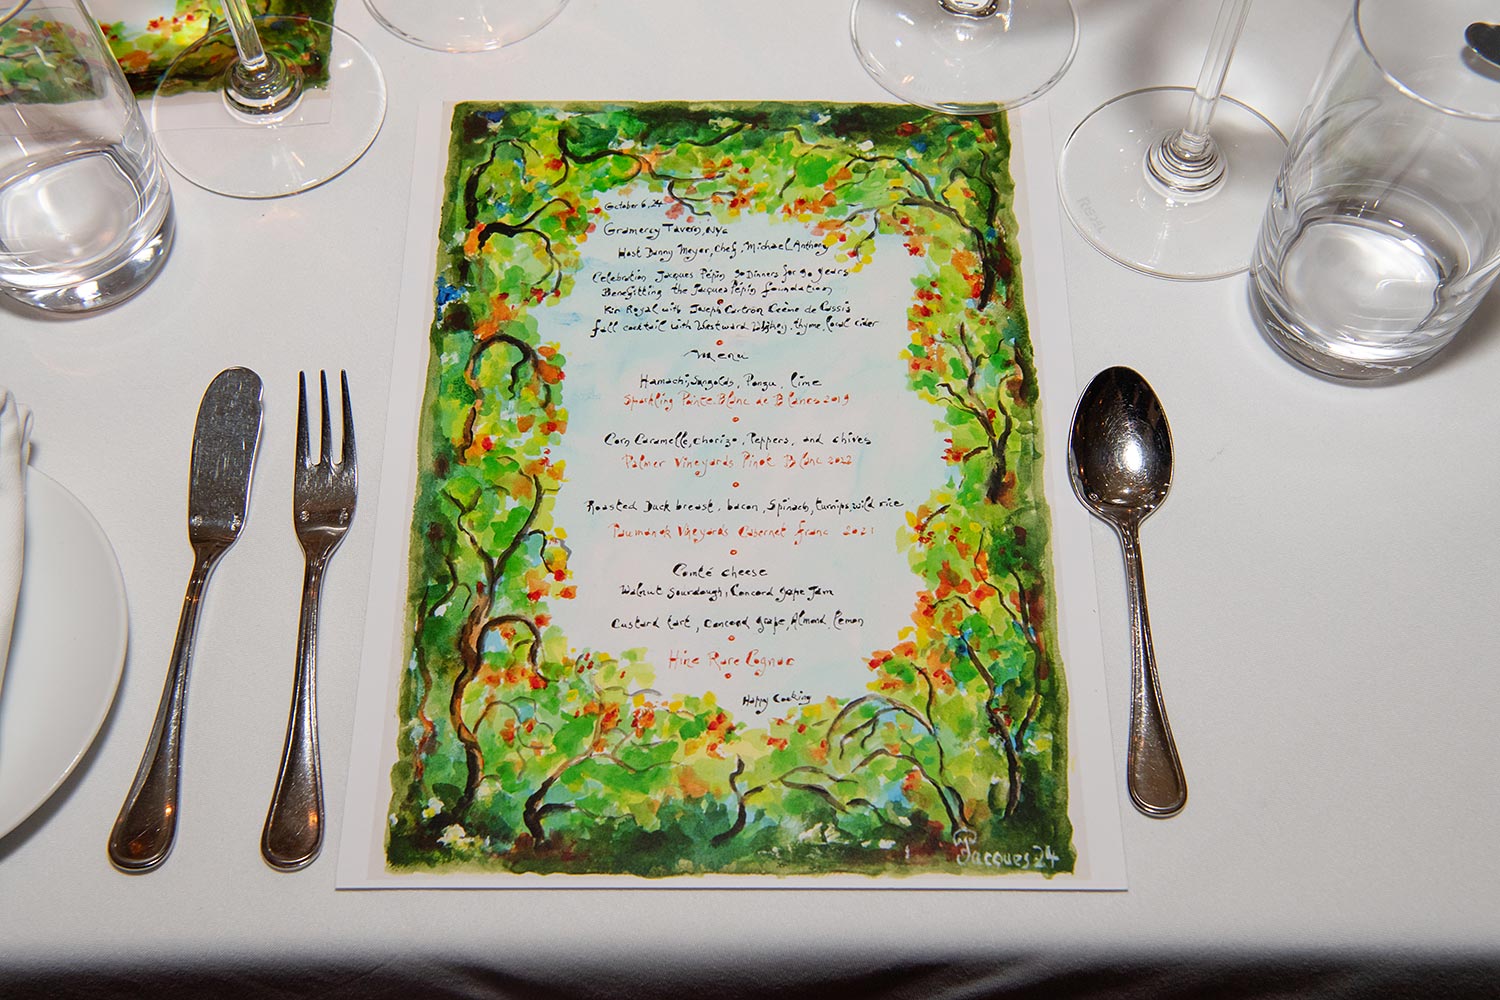 October 6, 24
Gramercy Tavern, NYC
Host Danny Meyer, Chef, Michael Anthony
Celebration Jacques Pépin 90 Dinners for 90 years
Benefitting the Jacques Pépin foundation
Kir Royal with Joseph Cartron Crème de Cassis
fall cocktail with Westward Whiskey, thyme, local cider
Menu
Hamachi, Sungolds, Ponzu, lime
Sparkling Pointe Blanc de Blancs 2019
Corn Caramelle, chorizo, Peppers, and chives
Palmer Vineyards Pinot Blanc 2022
Roasted Duck breast, bacon, Spinach, turnips, wild rice
Paumanok Vineyards Cabernet franc 2021
Comté cheese
Walnut sourdough, Concord grape Jam
Custard tart, Concord grape, Almond, lemon
Hine Rare Cognac
Happy Cooking
Jacques 24
RIEDEL